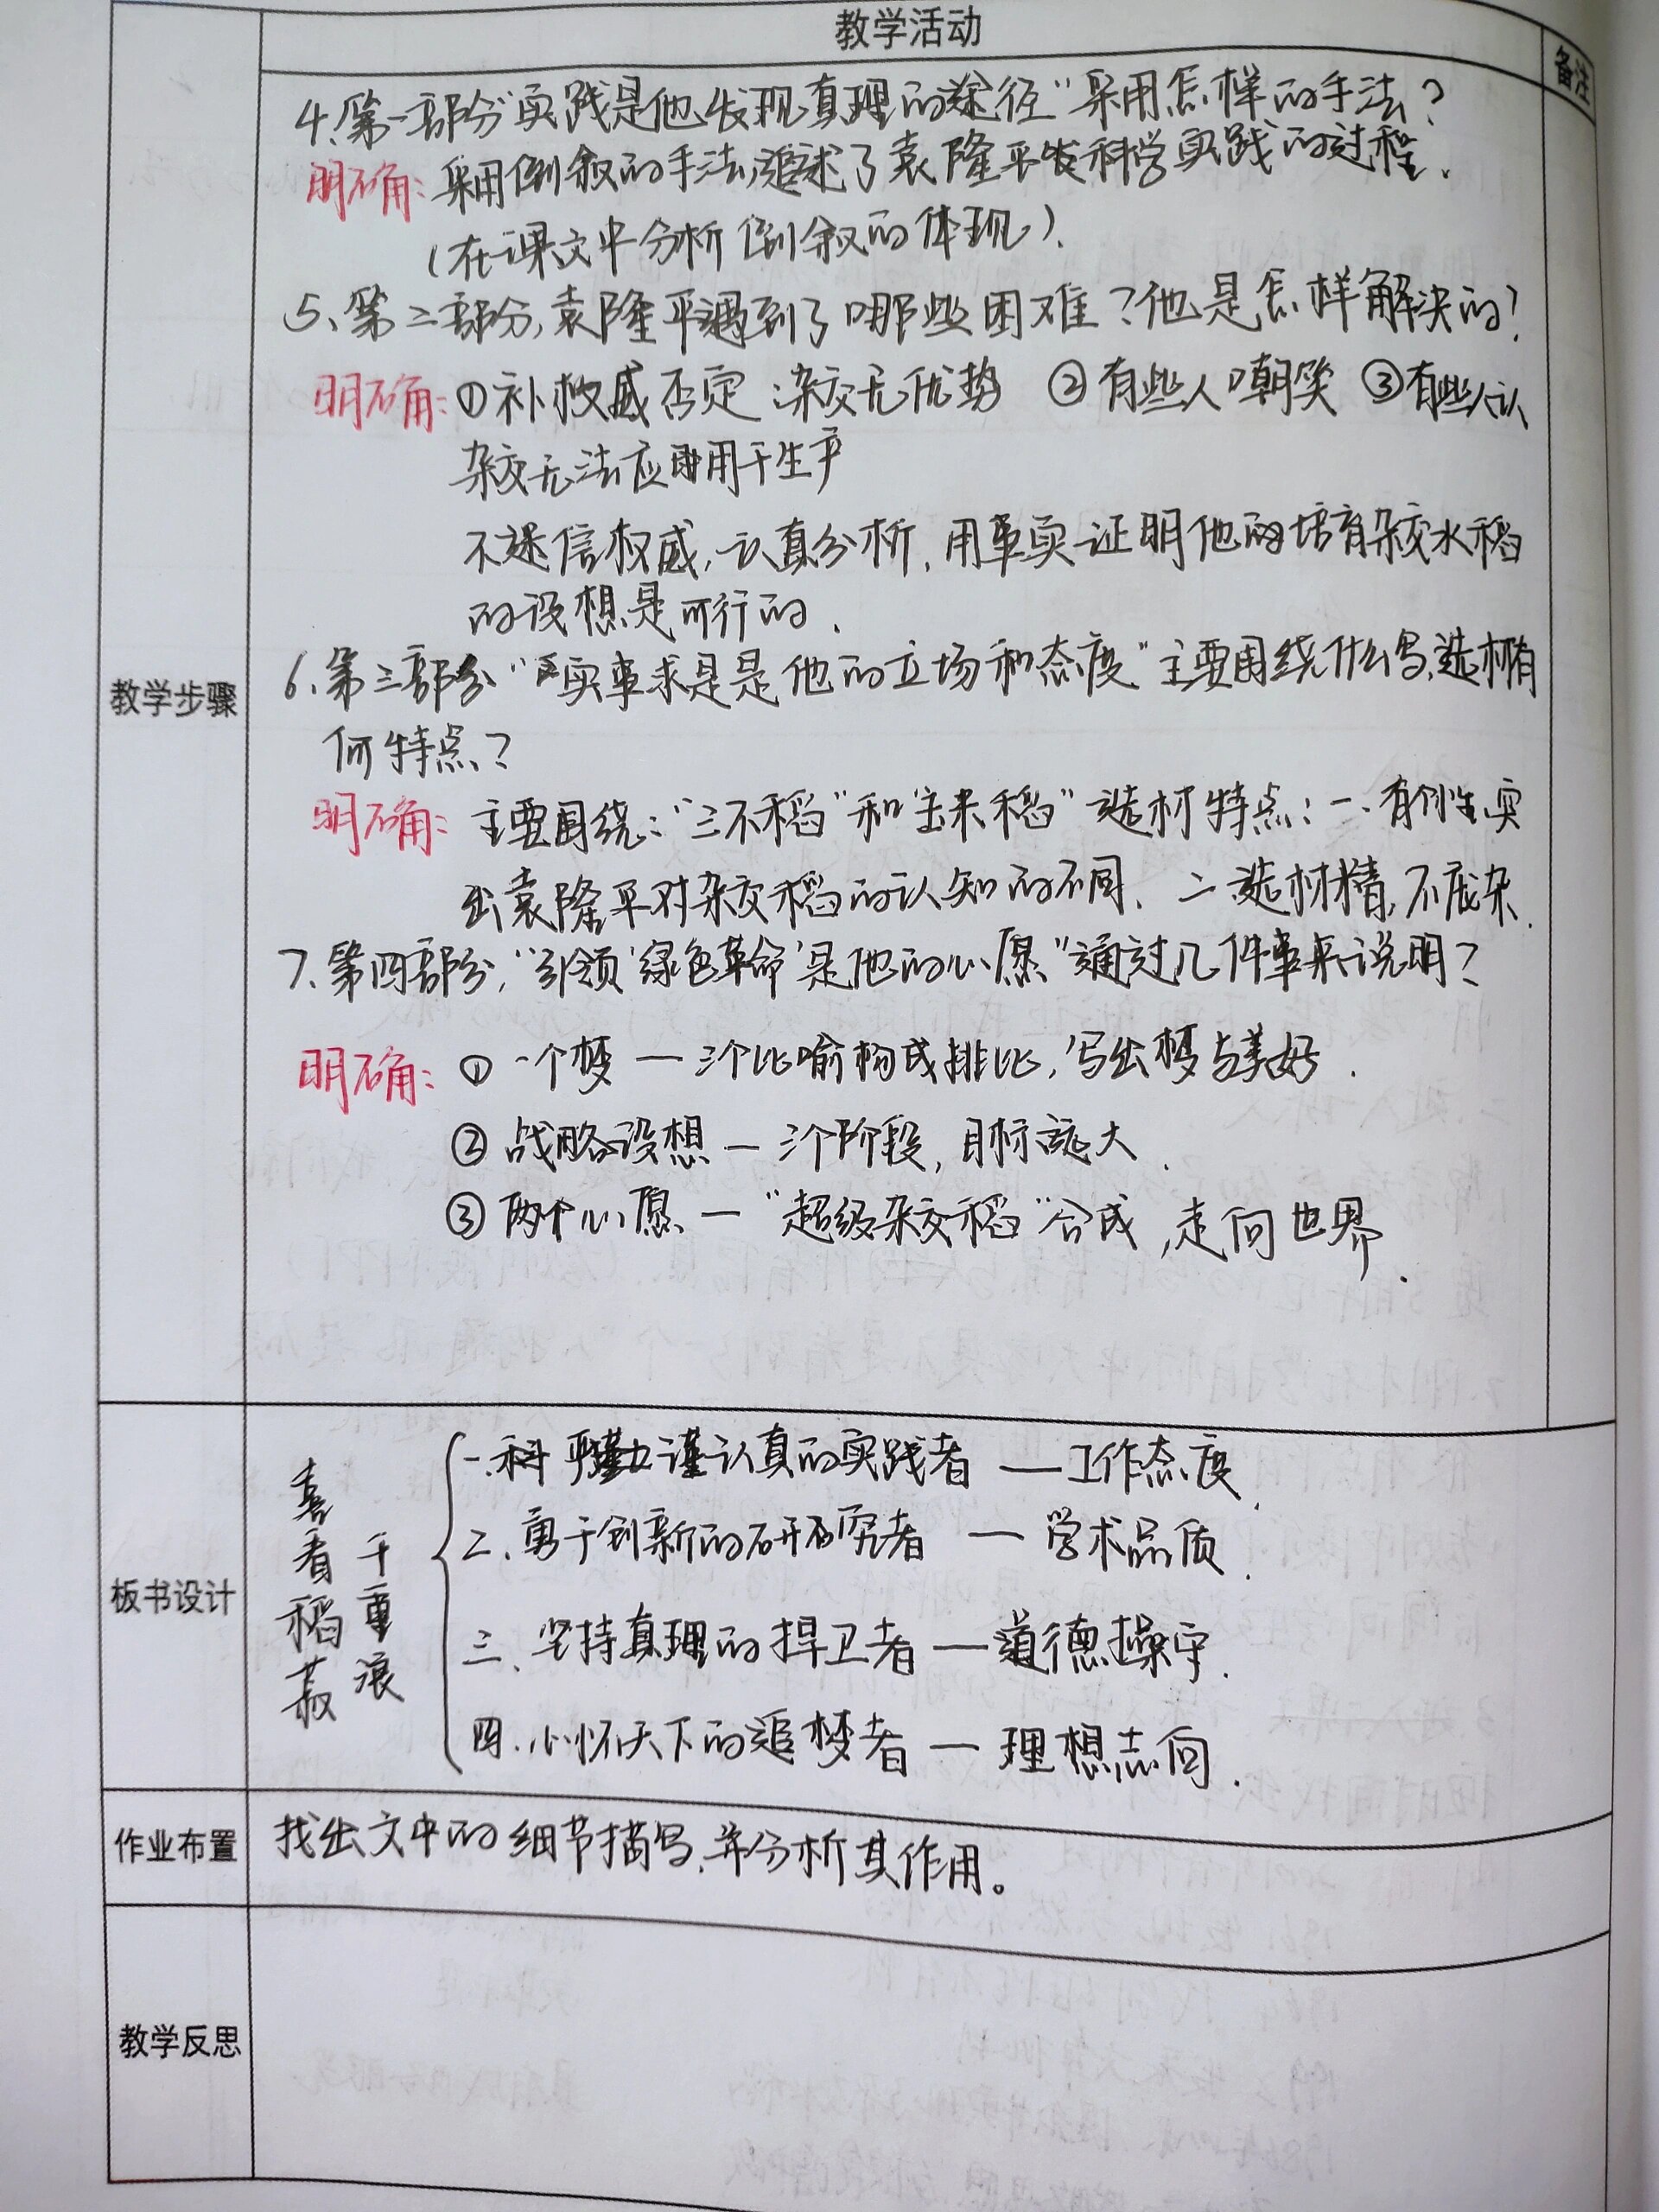 教学活动
备注
4.第一部分"实践是他发现真理的途径"采用怎样的手法？
明确：采用倒叙的手法,追述了袁隆平科学实践的过程.
(在课文中分析倒叙的体现).
5、第二部分,袁隆平遇到了哪些困难？他是怎样解决的？
明确：①权威否定 杂交无优势 ②有些人嘲笑 ③有些人认
杂交无法应用于生产
不迷信权威,认真分析,用事实证明他的培育杂交水稻
的设想是可行的.
教学步骤
6.第三部分"实事求是是他的立场和态度"主要围绕什么写,选材有
何特点？
明确：主要围绕："三不稻"和"全来稻"选材特点：一.有个性,突
出袁隆平对杂交稻的认知的不同. 二.选材精,不庞杂.
7.第四部分,"引领'绿色革命'是他的心愿"通过几件事来说明？
明确：①一个梦—三个比喻构成排比,写出梦与美好.
②战略设想—三个阶段,目标远大.
③两个心愿—"超级杂交稻"合成,走向世界.
板书设计
喜看稻菽
千重浪
一.严谨认真的实践者——工作态度.
二、勇于创新的研究者—学术品质.
三、坚持真理的捍卫者—道德操守.
四.心怀天下的追梦者—理想志向.
作业布置
找出文中的细节描写,并分析其作用。
教学反思